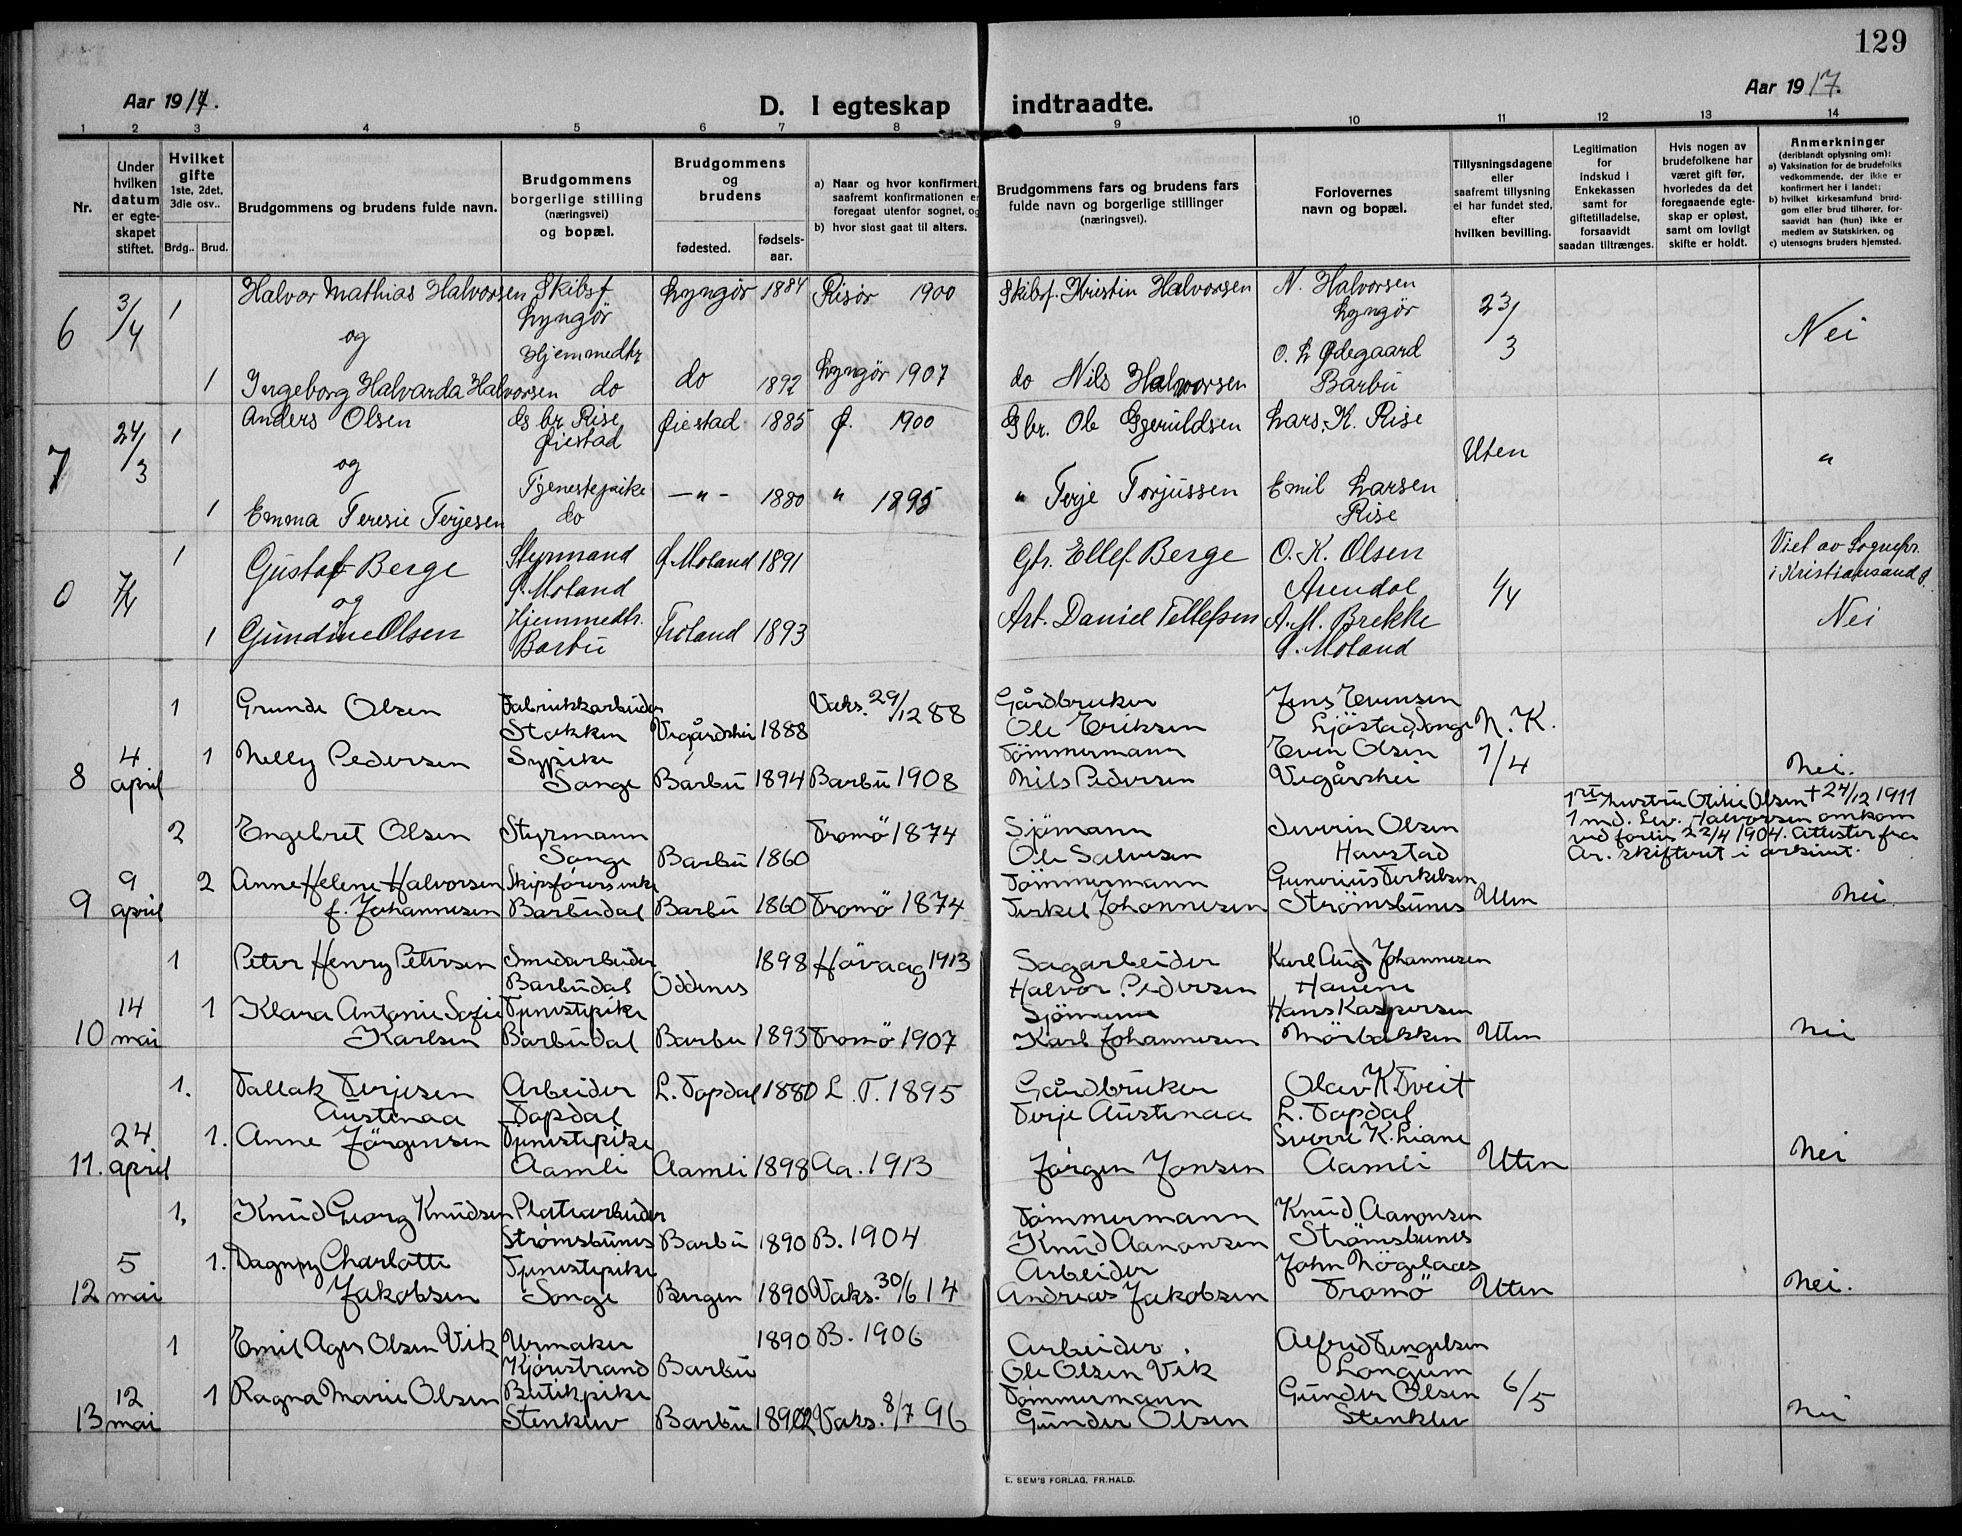 129
Aar 1917.
D. I egteskap indtraadte.
Aar 1917.
1 2 3 4 5 6 7 8 9 10 11 12 13 14
Nr.
Under hvilken datum er egteskapet stiftet.
Hvilket gifte 1ste, 2det, 3die osv..
Brdg.. Brud.
Brudgommens og brudens fulde navn.
Brudgommens borgerlige stilling (næringsvei) og bopæl.
Brudgommens og brudens
fødested. fødselsaar.
a) Naar og hvor konfirmert, saafremt konfirmationen er foregaat utenfor sognet, og
b) hvor sidst gaat til alters.
Brudgommens fars og brudens fars fulde navn og borgerlige stillinger (næringsvei).
Forlovernes navn og bopæl.
Tillysningsdagene eller saafremt tillysning ei har fundet sted, efter hvilken bevilling.
Legitimation for indskud i Enkekassen samt for giftetilladelse, forsaavidt saadan tiltrænges.
Hvis nogen av brudefolkene har været gift før, hvorledes da det foregaaende egteskap er opløst, samt om lovligt skifte er holdt.
Anmerkninger (deriblandt oplysning om):
a) Vaksination for de brudefolks vedkommende, der ikke er konfirmert her i landet;
b) hvilket kirkesamfund brudgom eller brud tilhører, forsaavidt han (hun) ikke er medlem av Statskirken, og
c) utensogns bruders hjemsted.
6 3/4 1 Halvor Mathias Halvorsen Skibsf. Lyngör 1884 Risör 1900 Skibsf. Kristin Halvorsen N. Halvorsen 23/3 Nei
og Lyngör Lyngör
Hjemmedtr. O. L Ødegaard
1 Ingeborg Halvarda Halvorsen do do 1892 Lyngör 1907 do Nils Halvorsen Barbu
7 24/3 1 Anders Olsen Gbr Rise Øiestad 1885 Ø. 1900 Gbr. Ole Gjeruldsen Lars K. Rise Uten "
og Øiestad
Tjenestepike -"- 1880 " 1895 " Terje Torjussen Emil Larsen
1 Emma Teresie Terjesen do Rise
0 7/4 1 Gustaf Berge Styrmand Ø. Moland 1891 Gbr. Ellef Berge O. K. Olsen 1/4 Viet av Sognepr.
og Ø. Moland Arendal i Kristiansand S.
1 Gundine Olsen Hjemmedtr. Froland 1893 Arb. Daniel Tellefsen A. M. Brekke Nei
Barbu Ø. Moland
1 Grunde Olsen Fabrikkarbeider Vegårdshei 1888 Vaks. 29/12 88 Gårdbruker Jens Evensen
Stokken Ole Eriksen Songe N. K.
8 4 april 1 Nelly Pedersen Sypike Tömmermann Even Olsen 1/4
Songe Barbu 1894 Barbu 1908 Nils Pedersen Vegårshei Nei.
2 Engebret Olsen Styrmann Barbu 1860 Tromö 1874 Sjömann Severin Olsen
Songe Ole Salvesen Havstad
1ste hustru Olsen + 24/12 1911
1 md. Halvorsen omkom
ved forlis 22/4 1904. Attester fra
Ar. skifteret i arkivet.
9 9 april 2 Anne Helene Halvorsen Skipsförers enke Tömmermann Gunerius Terkelsen
f. Johannesen Barbudal Barbu 1860 Tromö 1874 Terkel Johannesen Strömsbunes Uten Nei
1 Peter Henry Petersen Smedarbeider Oddernes 1898 Hövaag 1913 Sagarbeider Karl Aug Johannesen
Barbudal Halvor Pedersen
10 14 mai 1 Klara Antonie Sofie Tjenestepike Sjömann Hans Kaspersen
Karlsen Barbudal Barbu 1893 Tromö 1907 Karl Johannesen Mörbakken Uten Nei
1. Tallak Terjesen Arbeider L. Topdal 1880 L. T. 1895 Gårdbruker Olav K Tveit
Austenaa Topdal Terje Austenaa L. Topdal
11. 24 april 1. Anne Jörgensen Tjenestepike Sverre K. Liane
Aamli Aamli 1898 Aa. 1913 Jörgen Jonsen Aamli Uten Nei
1. Knud Georg Knudsen Platearbeider Tömmermann Knud Aanonsen
Strömsbunes Barbu 1890 B. 1904 Knud Aanonsen Strömsbunes
12 5 mai 1. Dagny Charlotte Tjenestepike Arbeider John
Jakobsen Songe Bergen 1890 Vaks. 30/6 14 Andreas Jakobsen Tromö Uten Nei.
1 Emil Olsen Vik Urmaker Barbu 1890 B. 1906 Arbeider Alfred
Ole Olsen Vik Longum
13 12 mai 1 Ragna Marie Olsen Butikpike Tömmermann Gunder Olsen 6/5
Stenklev Barbu 1892 Vaks. 8/7 96 Gunder Olsen Stenklev Nei
E. SEM'S FORLAG, FR.HALD.